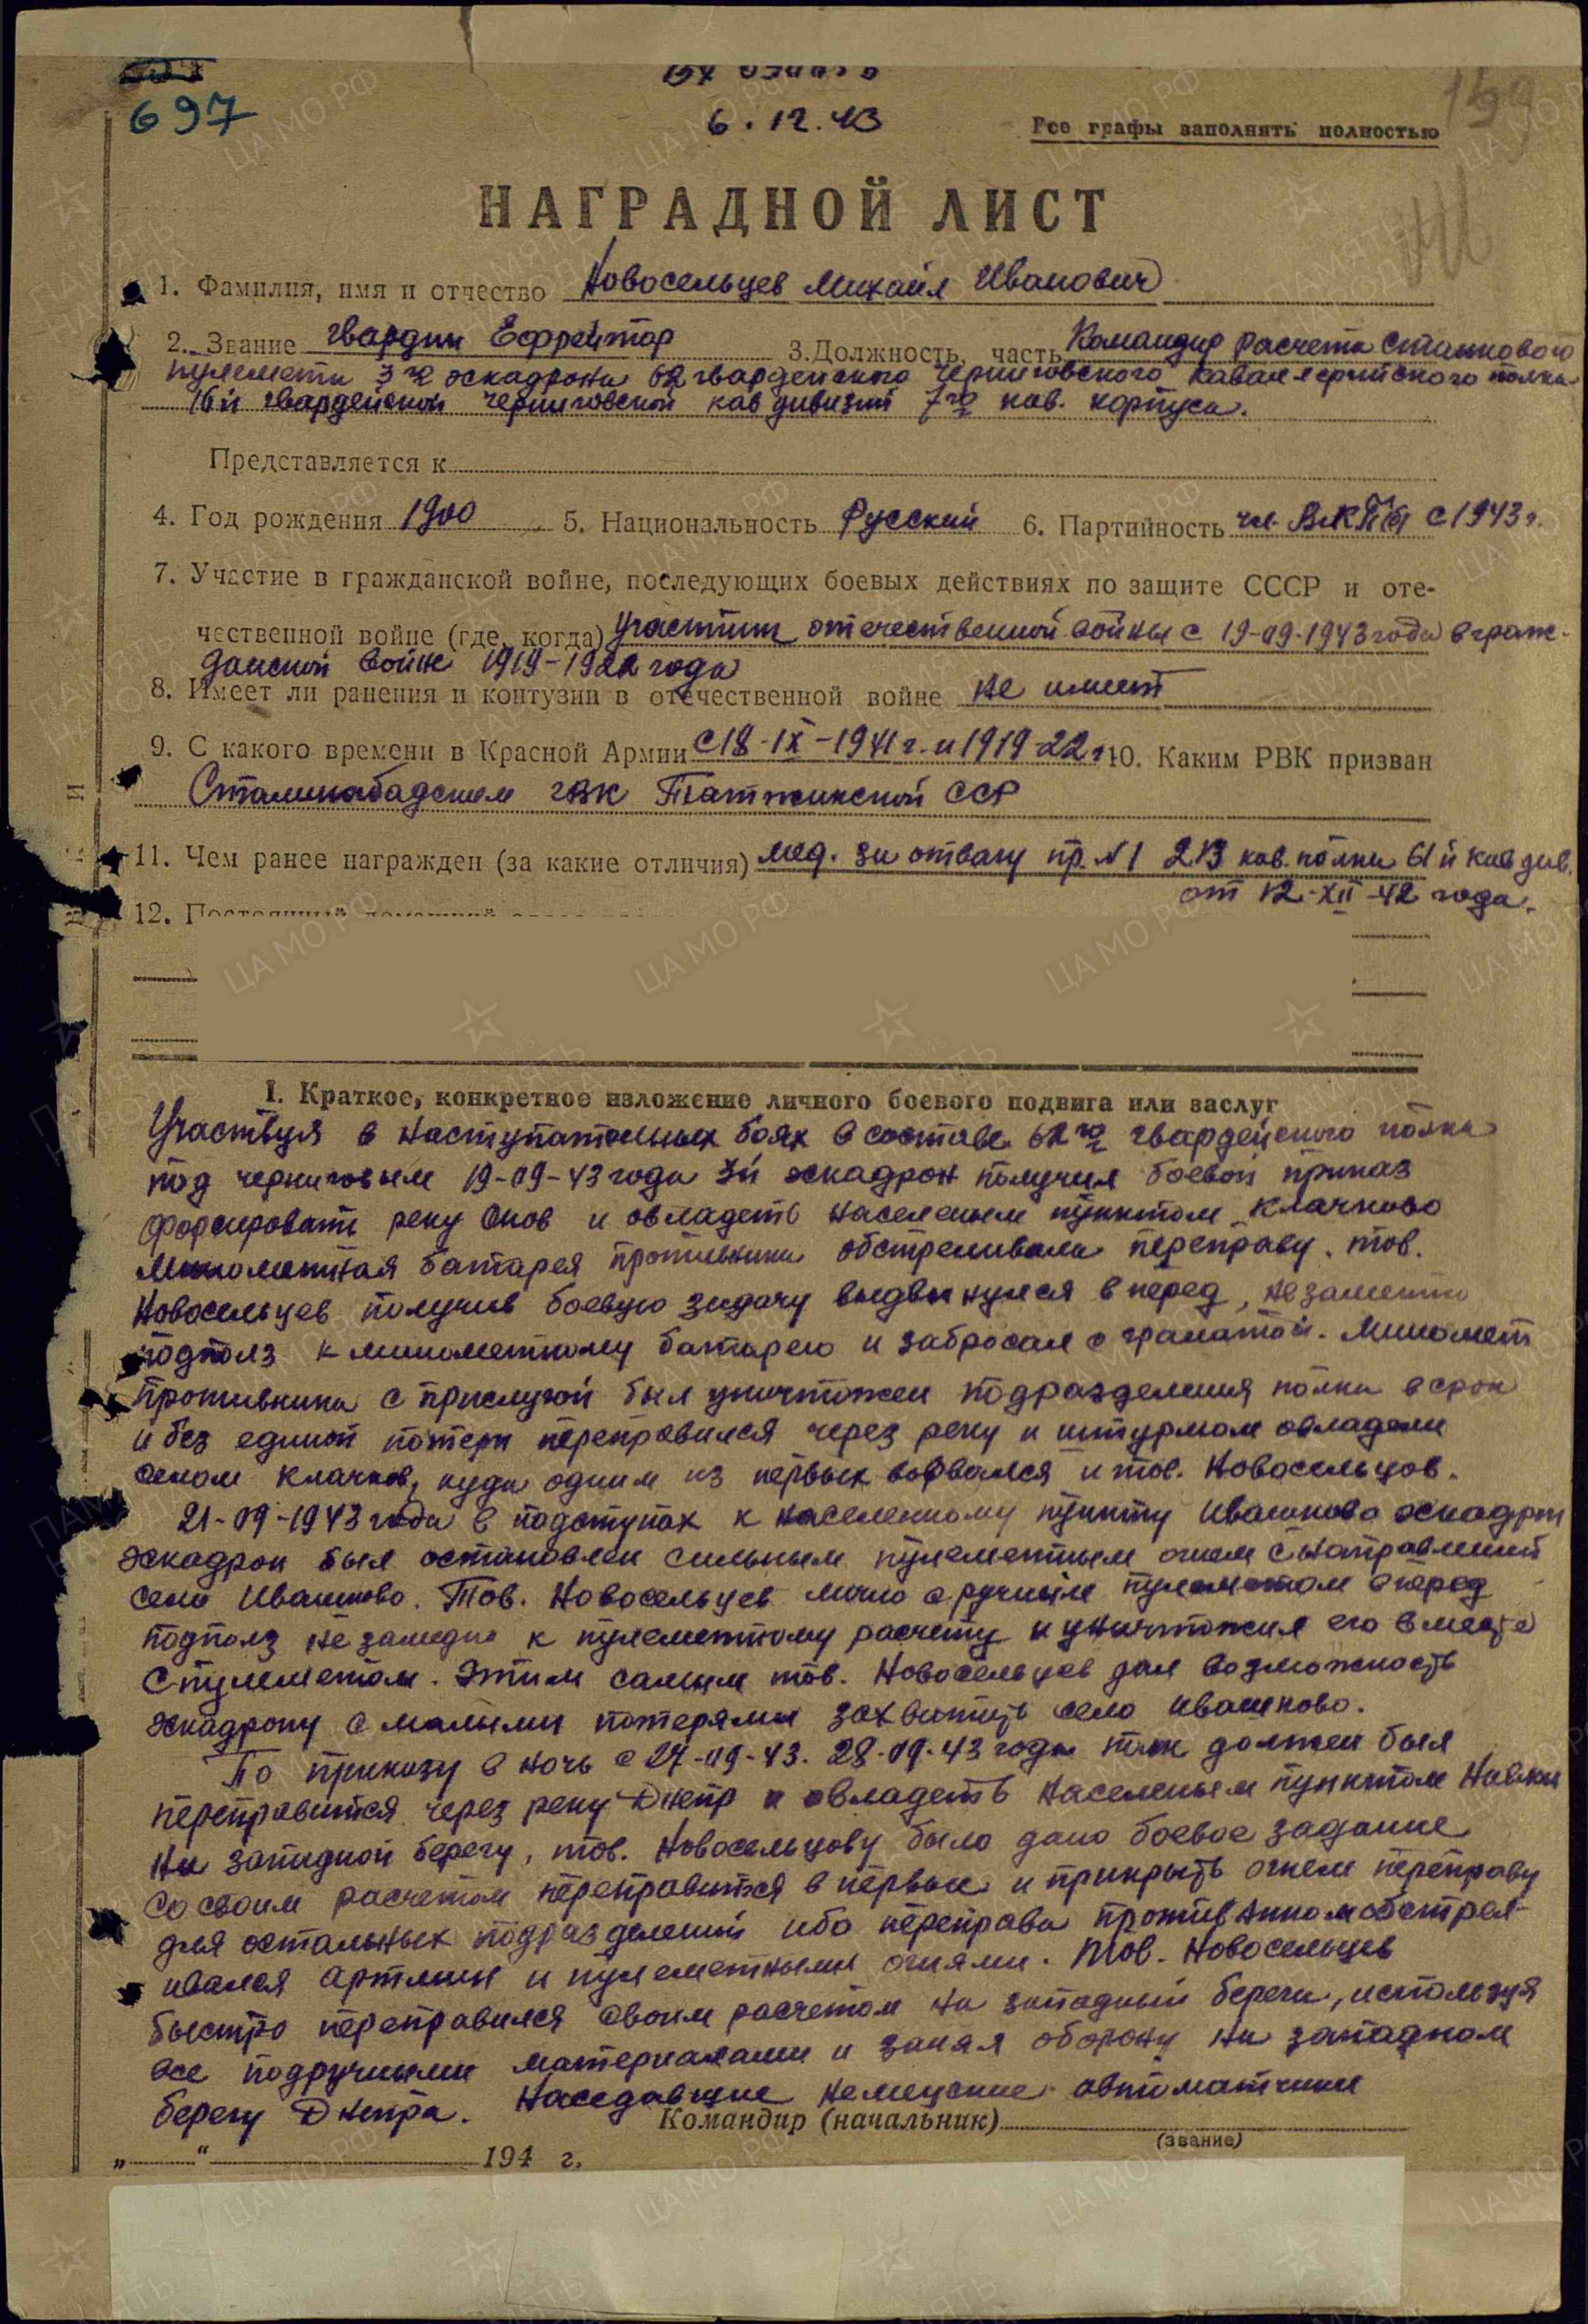 697
6.12.43
159
Все графы заполнять полностью
НАГРАДНОЙ ЛИСТ
1. Фамилия, имя и отчество Новосельцев Михаил Иванович
2. Звание гвардии Ефрейтор 3. Должность, часть Командир расчета станкового
пулемета 3го эскадрона 62 гвардейского Черниговского кавалерийского полка
16й гвардейской черниговской кав дивизии 7го кав. корпуса.
Представляется к
4. Год рождения 1900 5. Национальность Русский 6. Партийность чл ВКП(б) с 1943 г.
7. Участие в гражданской войне, последующих боевых действиях по защите СССР и оте-
чественной войне (где, когда) участник отечественной войны с 19-09-1943 года в граж-
данской войне 1919-1922 года
8. Имеет ли ранения и контузии в отечественной войне не имеет
9. С какого времени в Красной Армии с 18-IX-1941 г. и 1919-22 г. 10. Каким РВК призван
Сталинобадским ГВК Татжикской ССР
11. Чем ранее награжден (за какие отличия) мед. за отвагу пр. №1 213 кав. полка 61й кав див.
от 12-XII-42 года.
12.
I. Краткое, конкретное изложение личного боевого подвига или заслуг
Участвуя в наступательных боях в составе 62го гвардейского полка
под черниговым 19-09-43 года 3й эскадрон получил боевой приказ
форсировать реку Снов и овладеть населеным пунктом Клачково
Минометная батарея противника обстреливала переправу. тов.
Новосельцев получив боевую задачу выдвинулся в перед, незаметно
подполз к минометному батарею и забросал с гранатой. Миномет
противника с прислугой был уничтожен подразделения полка в срок
и без единой потери переправился через реку и штурмом овладели
селом Клачков, куда одним из первых ворвался и тов. Новосельцов.
21-09-1943 года в подступах к населенному пункту Ивашково эскадрон
эскадрон был остановлен сильным пулеметным огнем с направлений
села Ивашково. Тов. Новосельцев лично с ручным пулеметом вперед
подполз незамедно к пулеметному расчету и уничтожил его вместе
с пулеметом. Этим самым тов. Новосельцев дал возможность
эскадрону с малыми потерями захватить село Ивашково.
По приказу в ночь с 27-09-43. 28-09-43 года полк должен был
переправится через реку Днепр и овладеть населеным пунктом Навки
На западной берегу, тов. Новосельцову было дано боевое задание
со своим расчетом переправится в первые и прикрыть огнем переправу
для остальных подразделений ибо переправа противником обстрел-
ивался артмин и пулеметными огнями. тов. Новосельцев
быстро переправился своим расчетом на западный берега, используя
все подручными материалами и занял оборону на западном
берегу Днепра. Наседавщие немецкие автоматчики
Командир (начальник)
(звание)
„ “ 194 г.